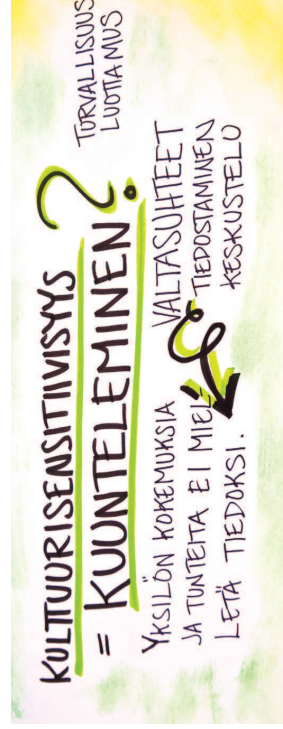 KULTTUURISENSITIIVISYYS
= KUUNTELEMINEN ?
TURVALLISUUS
LUOTTAMUS
YKSILÖN KOKEMUKSIA
JA TUNTEITA EI MIEL-
LETÄ TIEDOKSI.
VALTASUHTEET
TIEDOSTAMINEN
KESKUSTELU